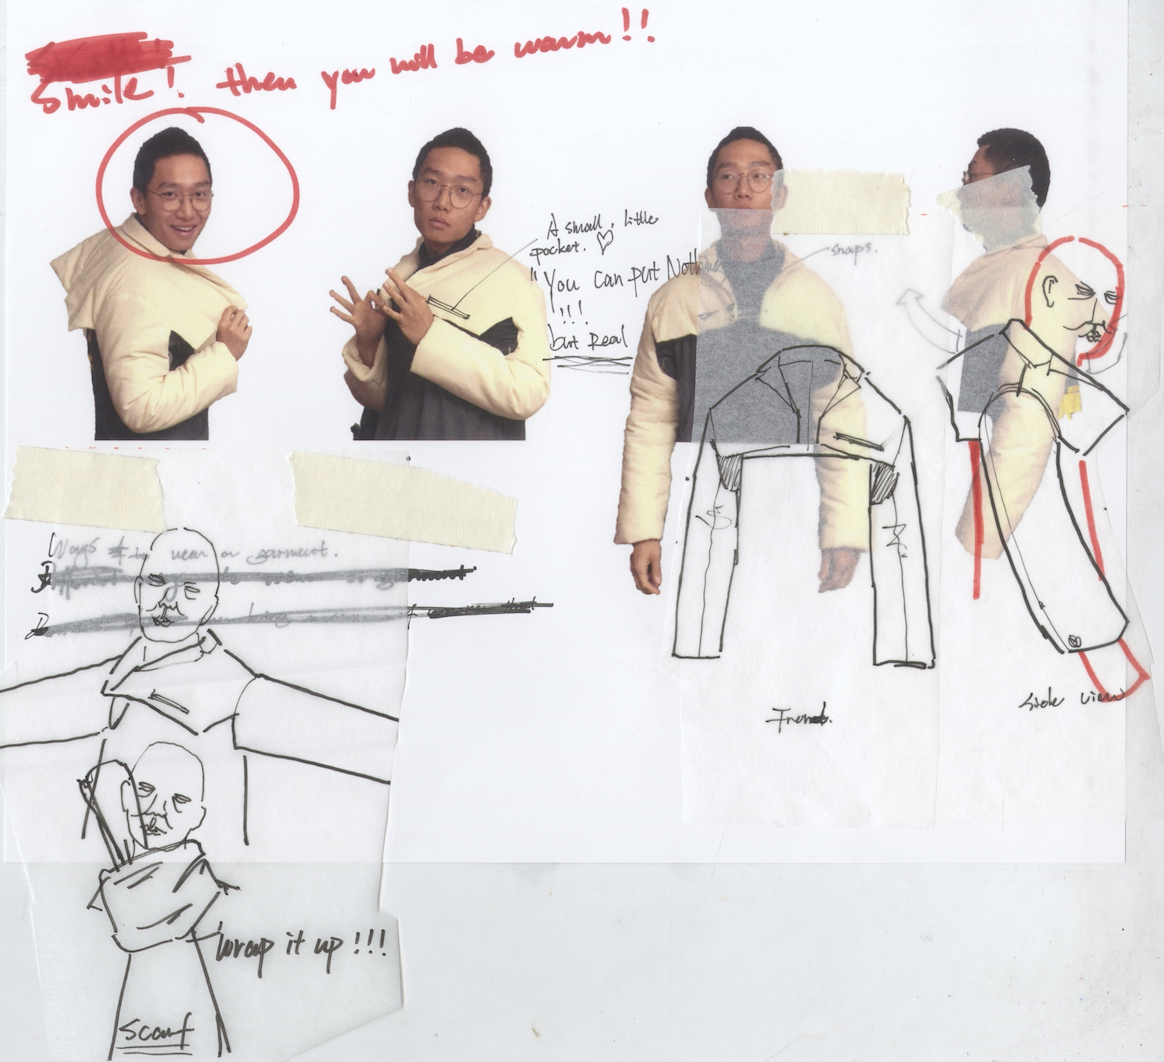 Smile! then you will be warm!!
A small, little
pocket.
"You can put Noth
!!!
but Real
snaps.
Ways to wear a garment.
Front.
Side view
Wrap it up!!!
Scarf